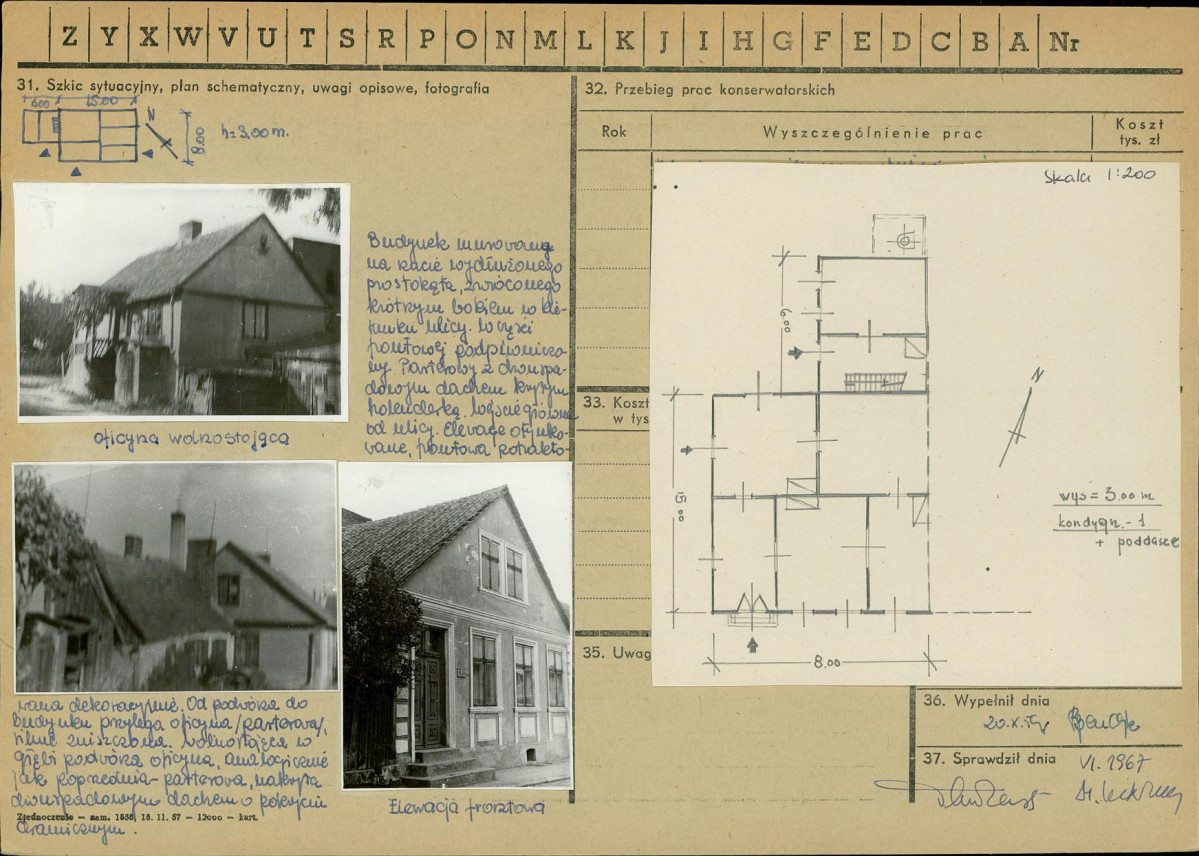 Z Y X W V U T S R P O N M L K J I H G F E D C B A Nr
31. Szkic sytuacyjny, plan schematyczny, uwagi opisowe, fotografia
600 15.00
N
8.00
h=3,00m.
Budynek murowany
na rzucie wydłużonego
prostokąta, zwróconego
krótszym bokiem w kie-
runku ulicy. W części
frontowej podpiwniczo-
ny. Parterowy z dwuspa-
dowym dachem krytym
holenderką. Wejście główne
od ulicy. Elewacje otynko-
wane, frontowa potrakto-
oficyna wolnostojąca
wana dekoracyjnie. Od podwórza do
budynku przylega oficyna /parterowa/,
silnie zniszczona. Wolnostojąca w
głębi podwórza oficyna, analogicznie
jak poprzednia - parterowa, nakryta
dwuspadowym dachem o pokryciu
ceramicznym.
Elewacja frontowa
Zjednoczenie — zam. 1856, 16. 11. 57 — 12000 — kart.
32. Przebieg prac konserwatorskich
Rok
Wyszczególnienie prac
Koszt
tys. zł
Skala 1:200
6.00
15.00
8.00
N
wys = 3.00 m
kondygn. - 1
+ poddasze
33. Koszt
w tys
35. Uwag
36. Wypełnił dnia
20.X.
37. Sprawdził dnia
VI. 1967